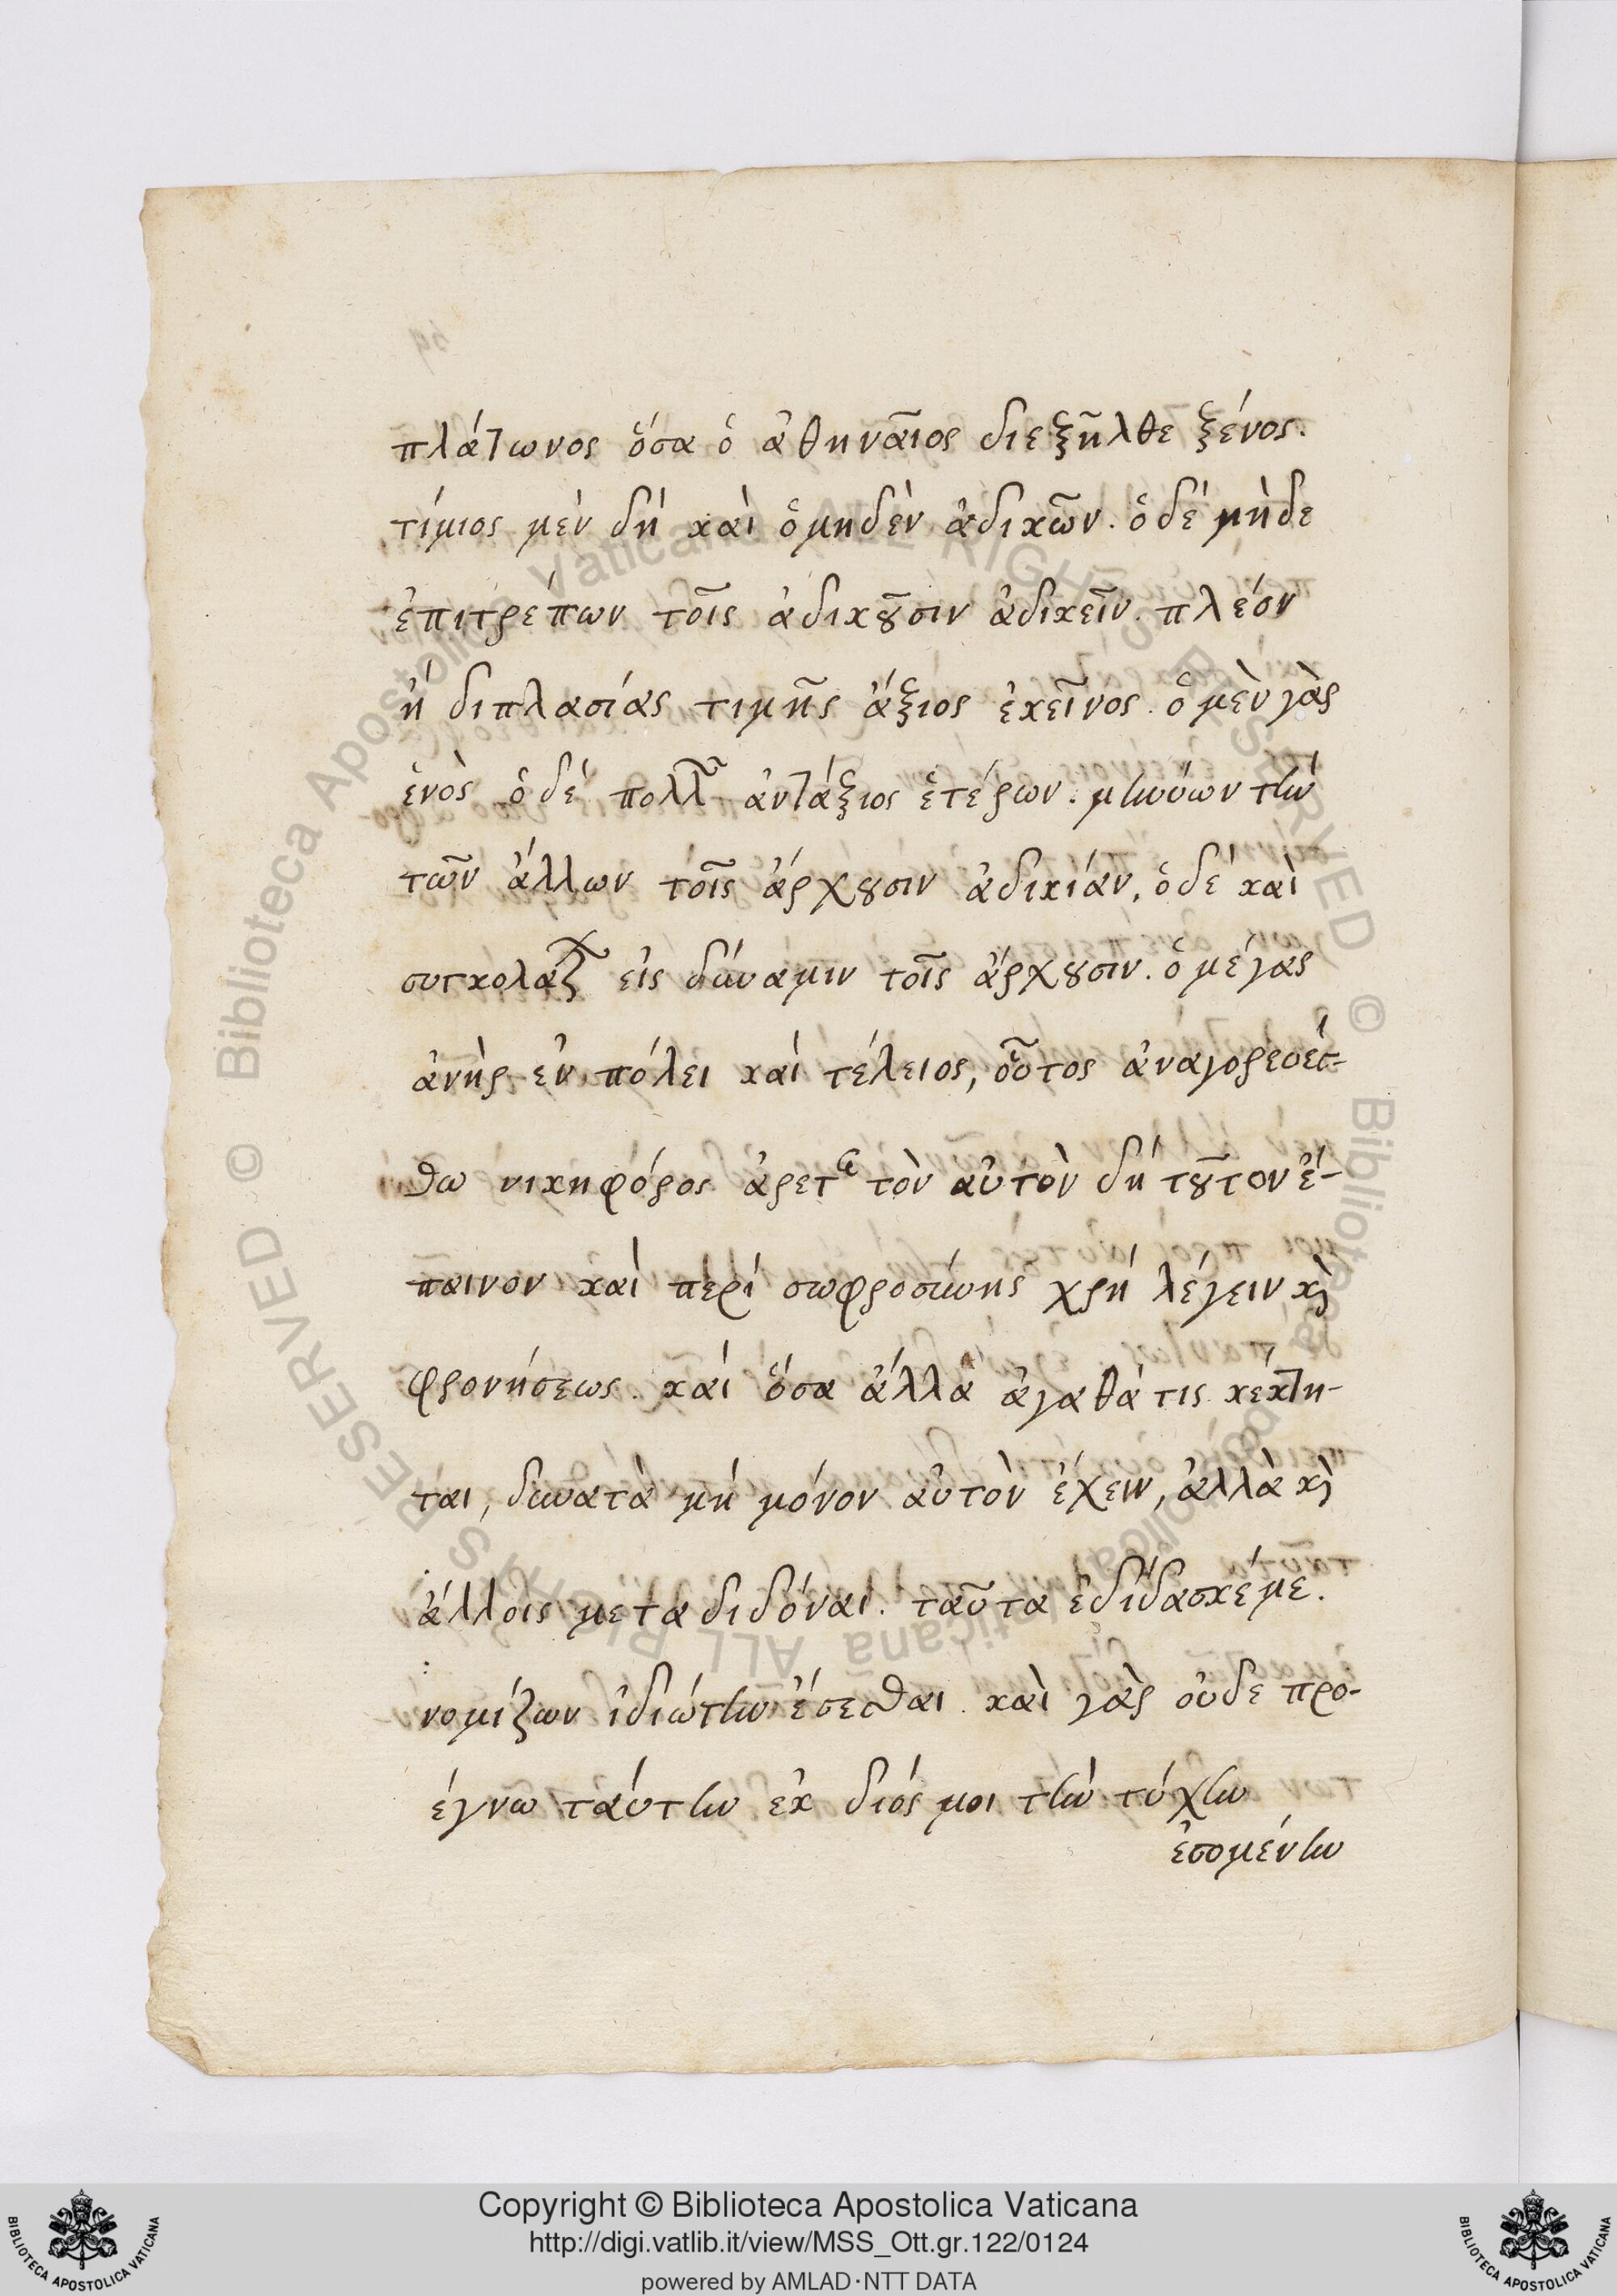 πλάτωνος ὅσα ὁ ἀθηναῖος διεξῆλθε ξένος.
τίμιος μὲν δὴ καὶ ὁ μηδὲν ἀδικῶν. ὁ δὲ μὴδε
ἐπιτρέπων τοῖς ἀδικοῦσιν ἀδικεῖν. πλέον
ἢ διπλασίας τιμῆς ἄξιος ἐκεῖνος. ὁ μὲν γὰρ
ἑνὸς ὁ δὲ πολλῶν ἀντάξιος ἑτέρων. μηνύων τὴν
τῶν ἄλλων τοῖς ἄρχουσιν ἀδικίαν, ὁ δὲ καὶ
συγκολάζων εἰς δύναμιν τοῖς ἄρχουσιν. ὁ μέγας
ἀνὴρ ἐν πόλει καὶ τέλειος, οὗτος ἀναγορευέσ-
θω νικηφόρος ἀρετῆς τὸν αὐτὸν δὴ τοῦτον ἔ-
παινον καὶ περὶ σωφροσύνης χρὴ λέγειν κὶ
φρονήσεως. καὶ ὅσα ἄλλα ἀγαθά τις κέκτη-
ται, δυνατὰ μὴ μόνον αὐτὸν ἔχειν, ἀλλὰ κὶ
ἄλλοις μεταδιδόναι. ταῦτα ἐδίδασκέ με.
νομίζων ἰδιώτην ἔσεσθαι. καὶ γὰρ οὐδε προ-
έγνω ταύτην ἐκ διός μοι τὴν τύχην
ἐσομένην
Copyright © Biblioteca Apostolica Vaticana
http://digi.vatlib.it/view/MSS_Ott.gr.122/0124
powered by AMLAD·NTT DATA